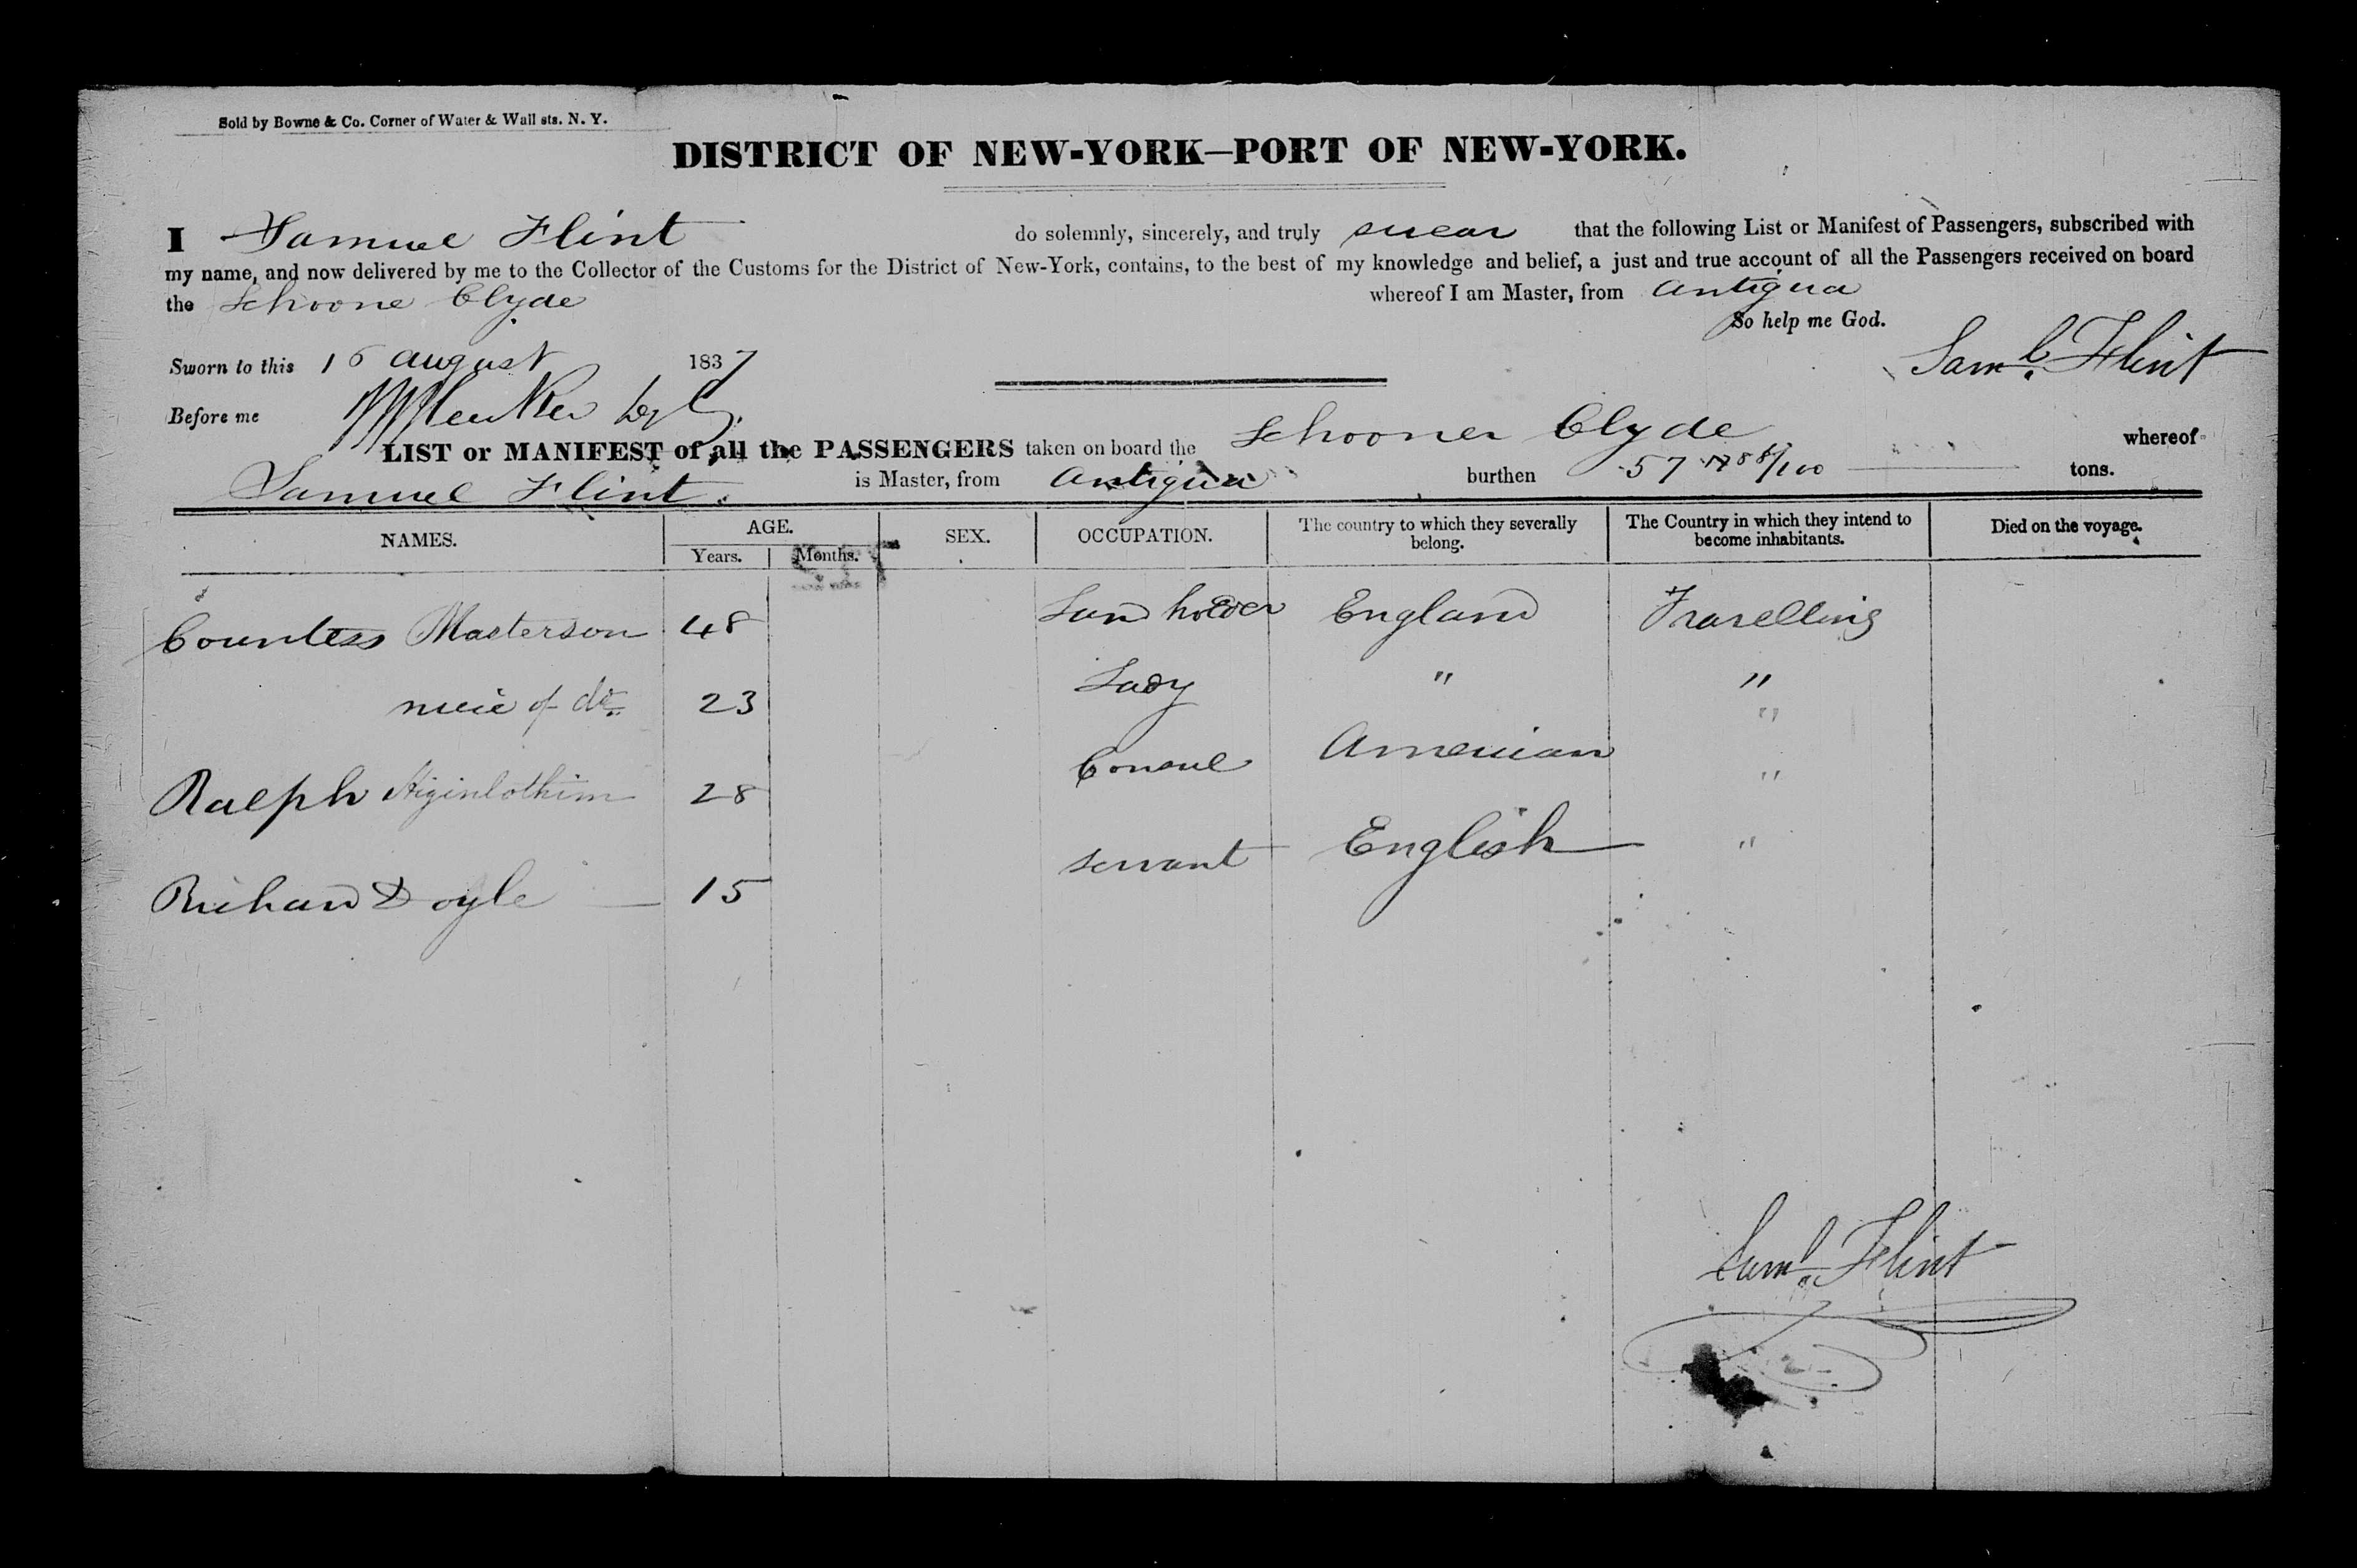 Sold by Bowne & Co. Corner of Water & Wall sts. N. Y.
DISTRICT OF NEW-YORK—PORT OF NEW-YORK.
I Samuel Flint do solemnly, sincerely, and truly swear that the following List or Manifest of Passengers, subscribed with
my name, and now delivered by me to the Collector of the Customs for the District of New-York, contains, to the best of my knowledge and belief, a just and true account of all the Passengers received on board
the Schoone Clyde whereof I am Master, from Antigua
So help me God.
Sworn to this 16 august 1837 Saml. Flint
Before me
LIST or MANIFEST of all the PASSENGERS taken on board the Schooner Clyde whereof
Samuel Flint. is Master, from Antigua burthen 57 tons.
NAMES. AGE. SEX. OCCUPATION. The country to which they severally belong. The Country in which they intend to become inhabitants. Died on the voyage.
Years. Months.
Countess Masterson 48 Land holder England Travelling
niece of do. 23 Lady " "
"
Ralph Higinbothim 28 Consul American "
Richard Doyle — 15 servant English "
Saml. Flint